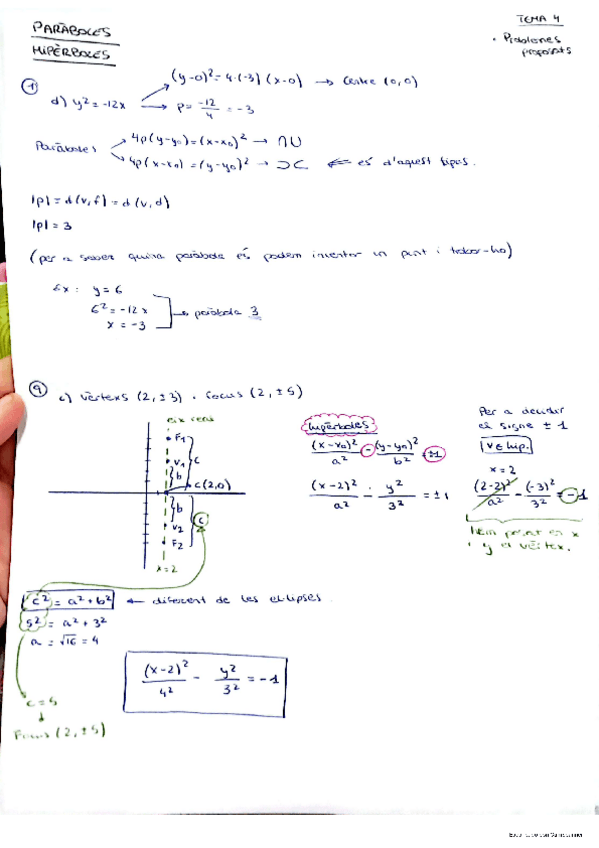 PARÀBOLES
HIPÈRBOLES
TEMA 4
• Problemes
proposats
① (y-0)² = 4·(-3)(x-0) → Centre (0,0)
d) y² = -12x → P = -12/4 = -3
Paràboles 4p(y-y₀) = (x-x₀)² → ∩∪
4p(x-x₀) = (y-y₀)² → ⊃⊂ ⇐ és d'aquest tipus.
|p| = d(v,f) = d(v,d)
|p| = 3
(per a saber quina paràbola és podem inventar un punt i trobar-ho)
Ex: y = 6
6² = -12x → paràbola 3
x = -3
⑨ c) Vèrtexs (2,±3) · Focus (2,±5)
eix real
F₁
V₁
b
c
C(2,0)
b
V₂
c
F₂
x=2
Hipèrboles:
(x-x₀)²/a² - (y-y₀)²/b² = ±1
(x-2)²/a² - y²/3² = ±1
Per a decidir
el signe ±1
V ∈ hip.
x=2
(2-2)²/a² - (-3)²/3² = -1
hem posat en x
i y el vèrtex.
c² = a² + b² ← diferent de les el·lipses
5² = a² + 3²
a = √16 = 4
(x-2)²/4² - y²/3² = -1
c = 5
↓
Focus (2,±5)